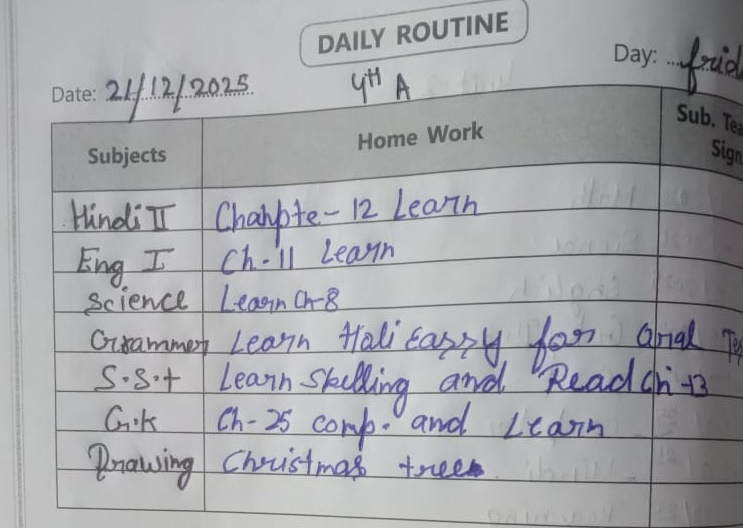 DAILY ROUTINE
Date: 21/12/2025. 4th A Day: frid
Subjects Home Work Sub. Tea
Sign
Hindi II Chahpte - 12 Learn
Eng I Ch - 11 Learn
Science Learn Ch-8
Grammer Learn Holi Eassy for Orial Tes
S.S.t Learn Skelling and Read Ch-13
G.K Ch - 25 comp. and Learn
Drawing Christmas tree